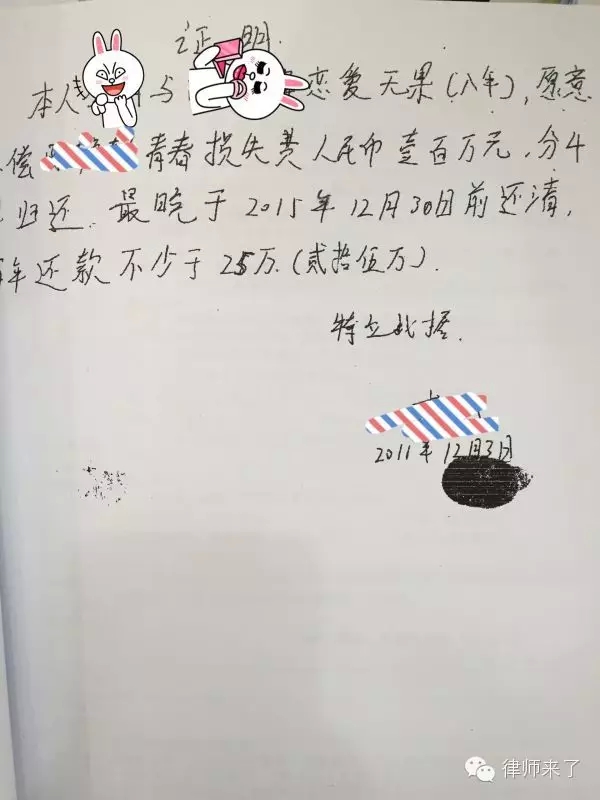 证明.
本人 与 恋爱无果(八年),愿意
偿 青春损失费人民币壹百万元.分4
归还.最晚于2015年12月30日前还清,
年还款不少于25万.(贰拾伍万).
特立此据.
2011年12月3日
律师来了